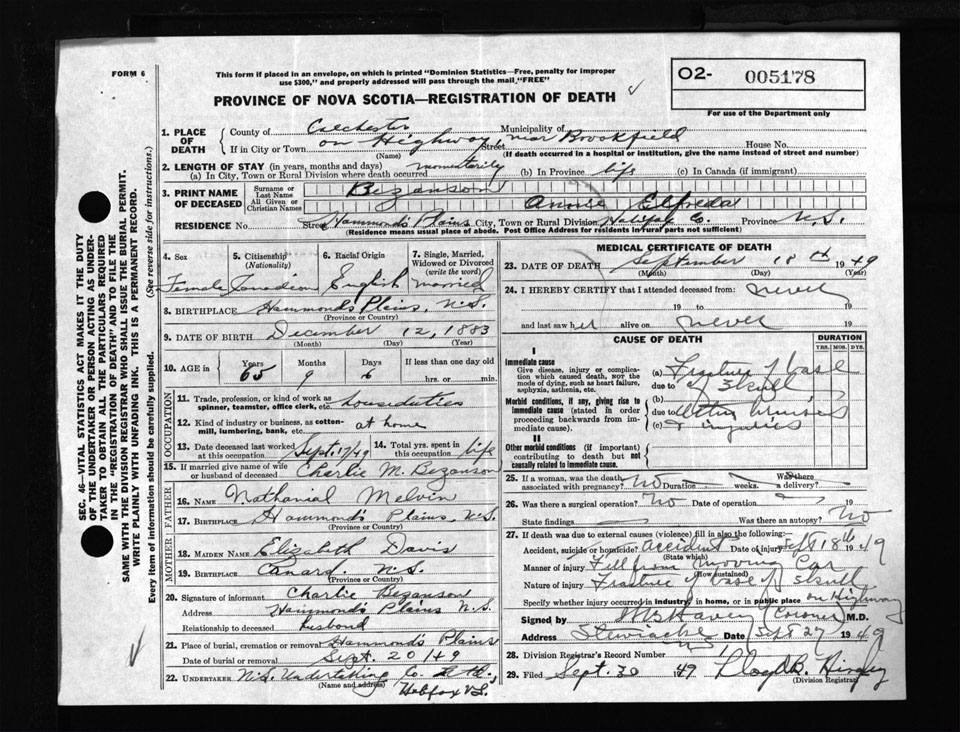 FORM 6
This form if placed in an envelope, on which is printed "Dominion Statistics—Free, penalty for improper
use $300," and properly addressed will pass through the mail "FREE"
O2- 005178
For use of the Department only
PROVINCE OF NOVA SCOTIA—REGISTRATION OF DEATH
1. PLACE OF DEATH
County of Colchester Municipality of
If in City or Town on Highway near Brookfield Street House No.
(Name) (If death occurred in a hospital or institution, give the name instead of street and number)
2. LENGTH OF STAY (in years, months and days)
(a) In City, Town or Rural Division where death occurred momentarily (b) In Province life (c) In Canada (if immigrant)
3. PRINT NAME OF DECEASED
Surname or Last Name Bezanson
All Given or Christian Names Annie Elfreda
RESIDENCE No. Street Hammonds Plains City, Town or Rural Division Halifax Co. Province N.S.
(Residence means usual place of abode. Post Office Address for residents in rural parts not sufficient)
4. Sex 5. Citizenship (Nationality) 6. Racial Origin 7. Single, Married, Widowed or Divorced (write the word)
Female Canadian English married
8. BIRTHPLACE Hammonds Plains, N.S.
(Province or Country)
9. DATE OF BIRTH December 12, 1883
(Month) (Day) (Year)
10. AGE in Years Months Days If less than one day old
65 9 6 hrs. or min.
OCCUPATION
11. Trade, profession, or kind of work as spinner, teamster, office clerk, etc. housiduties
12. Kind of industry or business, as cotton-mill, lumbering, bank, etc. at home
13. Date deceased last worked at this occupation Sept. 17/49 14. Total yrs. spent in this occupation life
15. If married give name of wife or husband of deceased Charlie M. Bezanson
FATHER
16. NAME Nathanial Melvin
17. BIRTHPLACE Hammonds Plains, N.S.
(Province or Country)
MOTHER
18. MAIDEN NAME Elizabeth Davis
19. BIRTHPLACE Canard N.S.
(Province or Country)
20. Signature of informant Charlie Bezanson
Address Hammonds Plains N.S.
Relationship to deceased husbond
21. Place of burial, cremation or removal Hammonds Plains
Date of burial or removal Sept. 20/49
22. UNDERTAKER N.S. Undertaking Co. Ltd.,
(Name and address) Halifax N.S.
MEDICAL CERTIFICATE OF DEATH
23. DATE OF DEATH September 18th 1949
(Month) (Day) (Year)
24. I HEREBY CERTIFY that I attended deceased from: never
19 to 19
and last saw her alive on never 19
CAUSE OF DEATH
DURATION
YRS. MOS. DYS.
I
Immediate cause
Give disease, injury or complication which caused death, NOT the mode of dying, such as heart failure, asphyxia, asthenia, etc.
(a) Fracture of base
due to of Skull
Morbid conditions, if any, giving rise to immediate cause (stated in order proceeding backwards from immediate cause).
(b)
due to bruises
(c) & injuries
II
Other morbid conditions (if important) contributing to death but not causally related to immediate cause.
25. If a woman, was the death associated with pregnancy? No Duration weeks. Was there a delivery?
26. Was there a surgical operation? No Date of operation 19
State findings Was there an autopsy? No
27. If death was due to external causes (violence) fill in also the following:
Accident, suicide or homicide? accident Date of injury Sept 18th 1949
(State which)
Manner of injury Fell from moving car
(How sustained)
Nature of injury Fracture of base of skull
Specify whether injury occurred in industry, in home, or in public place on Highway
Signed by (Coroner) M.D.
Address Stewiacke Date Sept 27 1949
28. Division Registrar's Record Number
29. Filed Sept. 30 1949 Lloyd B.
(Division Registrar)
SEC. 46—VITAL STATISTICS ACT MAKES IT THE DUTY
OF THE UNDERTAKER OR PERSON ACTING AS UNDER-
TAKER TO OBTAIN ALL THE PARTICULARS REQUIRED
IN THE "REGISTRATION OF DEATH" AND TO FILE THE
SAME WITH THE DIVISION REGISTRAR WHO SHALL ISSUE THE BURIAL PERMIT.
WRITE PLAINLY WITH UNFADING INK. THIS IS A PERMANENT RECORD.
Every item of information should be carefully supplied. (See reverse side for instructions.)